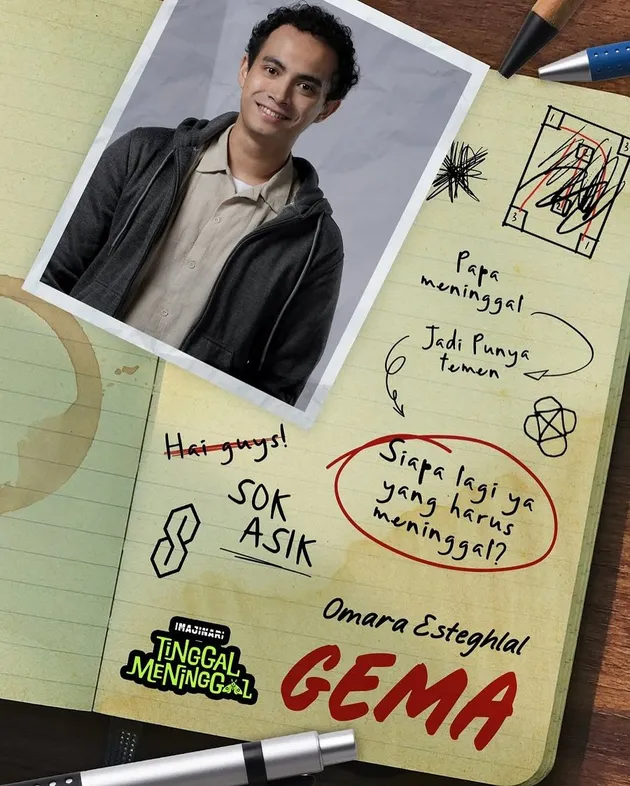 1
3
3
Papa
meninggal
Jadi Punya
temen
Hai guys!
Siapa lagi ya
yang harus
meninggal?
SOK
ASIK
Omara Esteghlal
GEMA
IMAJINARI
TINGGAL
MENINGGAL